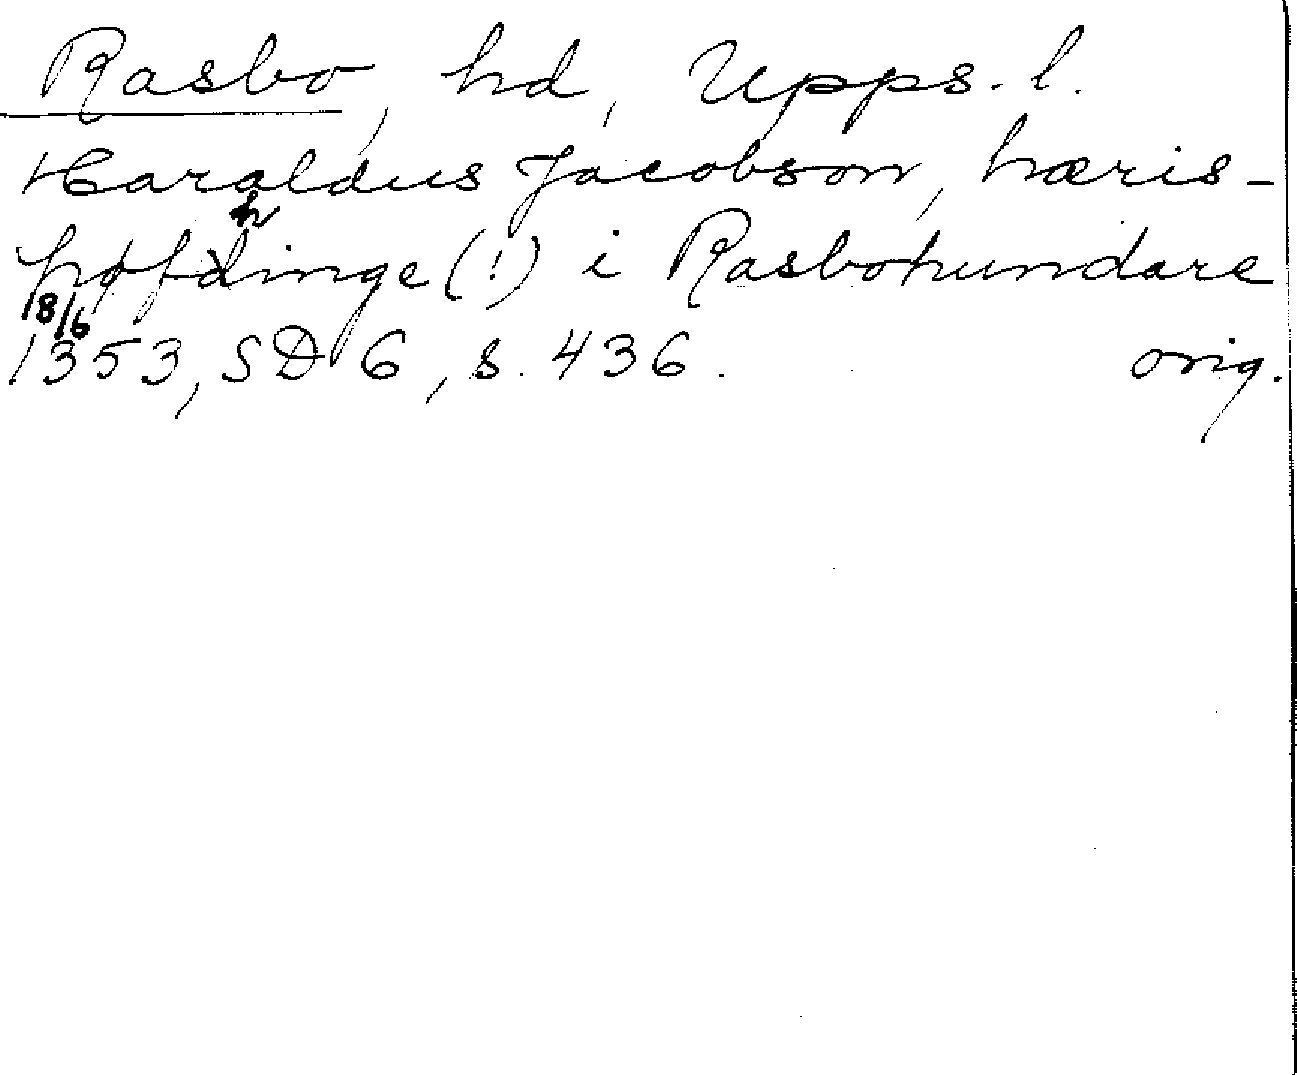 Rasbo, hd, Upps. l.
Haraldus Jacobson, hæris-
høfhinge (!) i Rasbohundare
18/6
1353, SD 6, s. 436. orig.